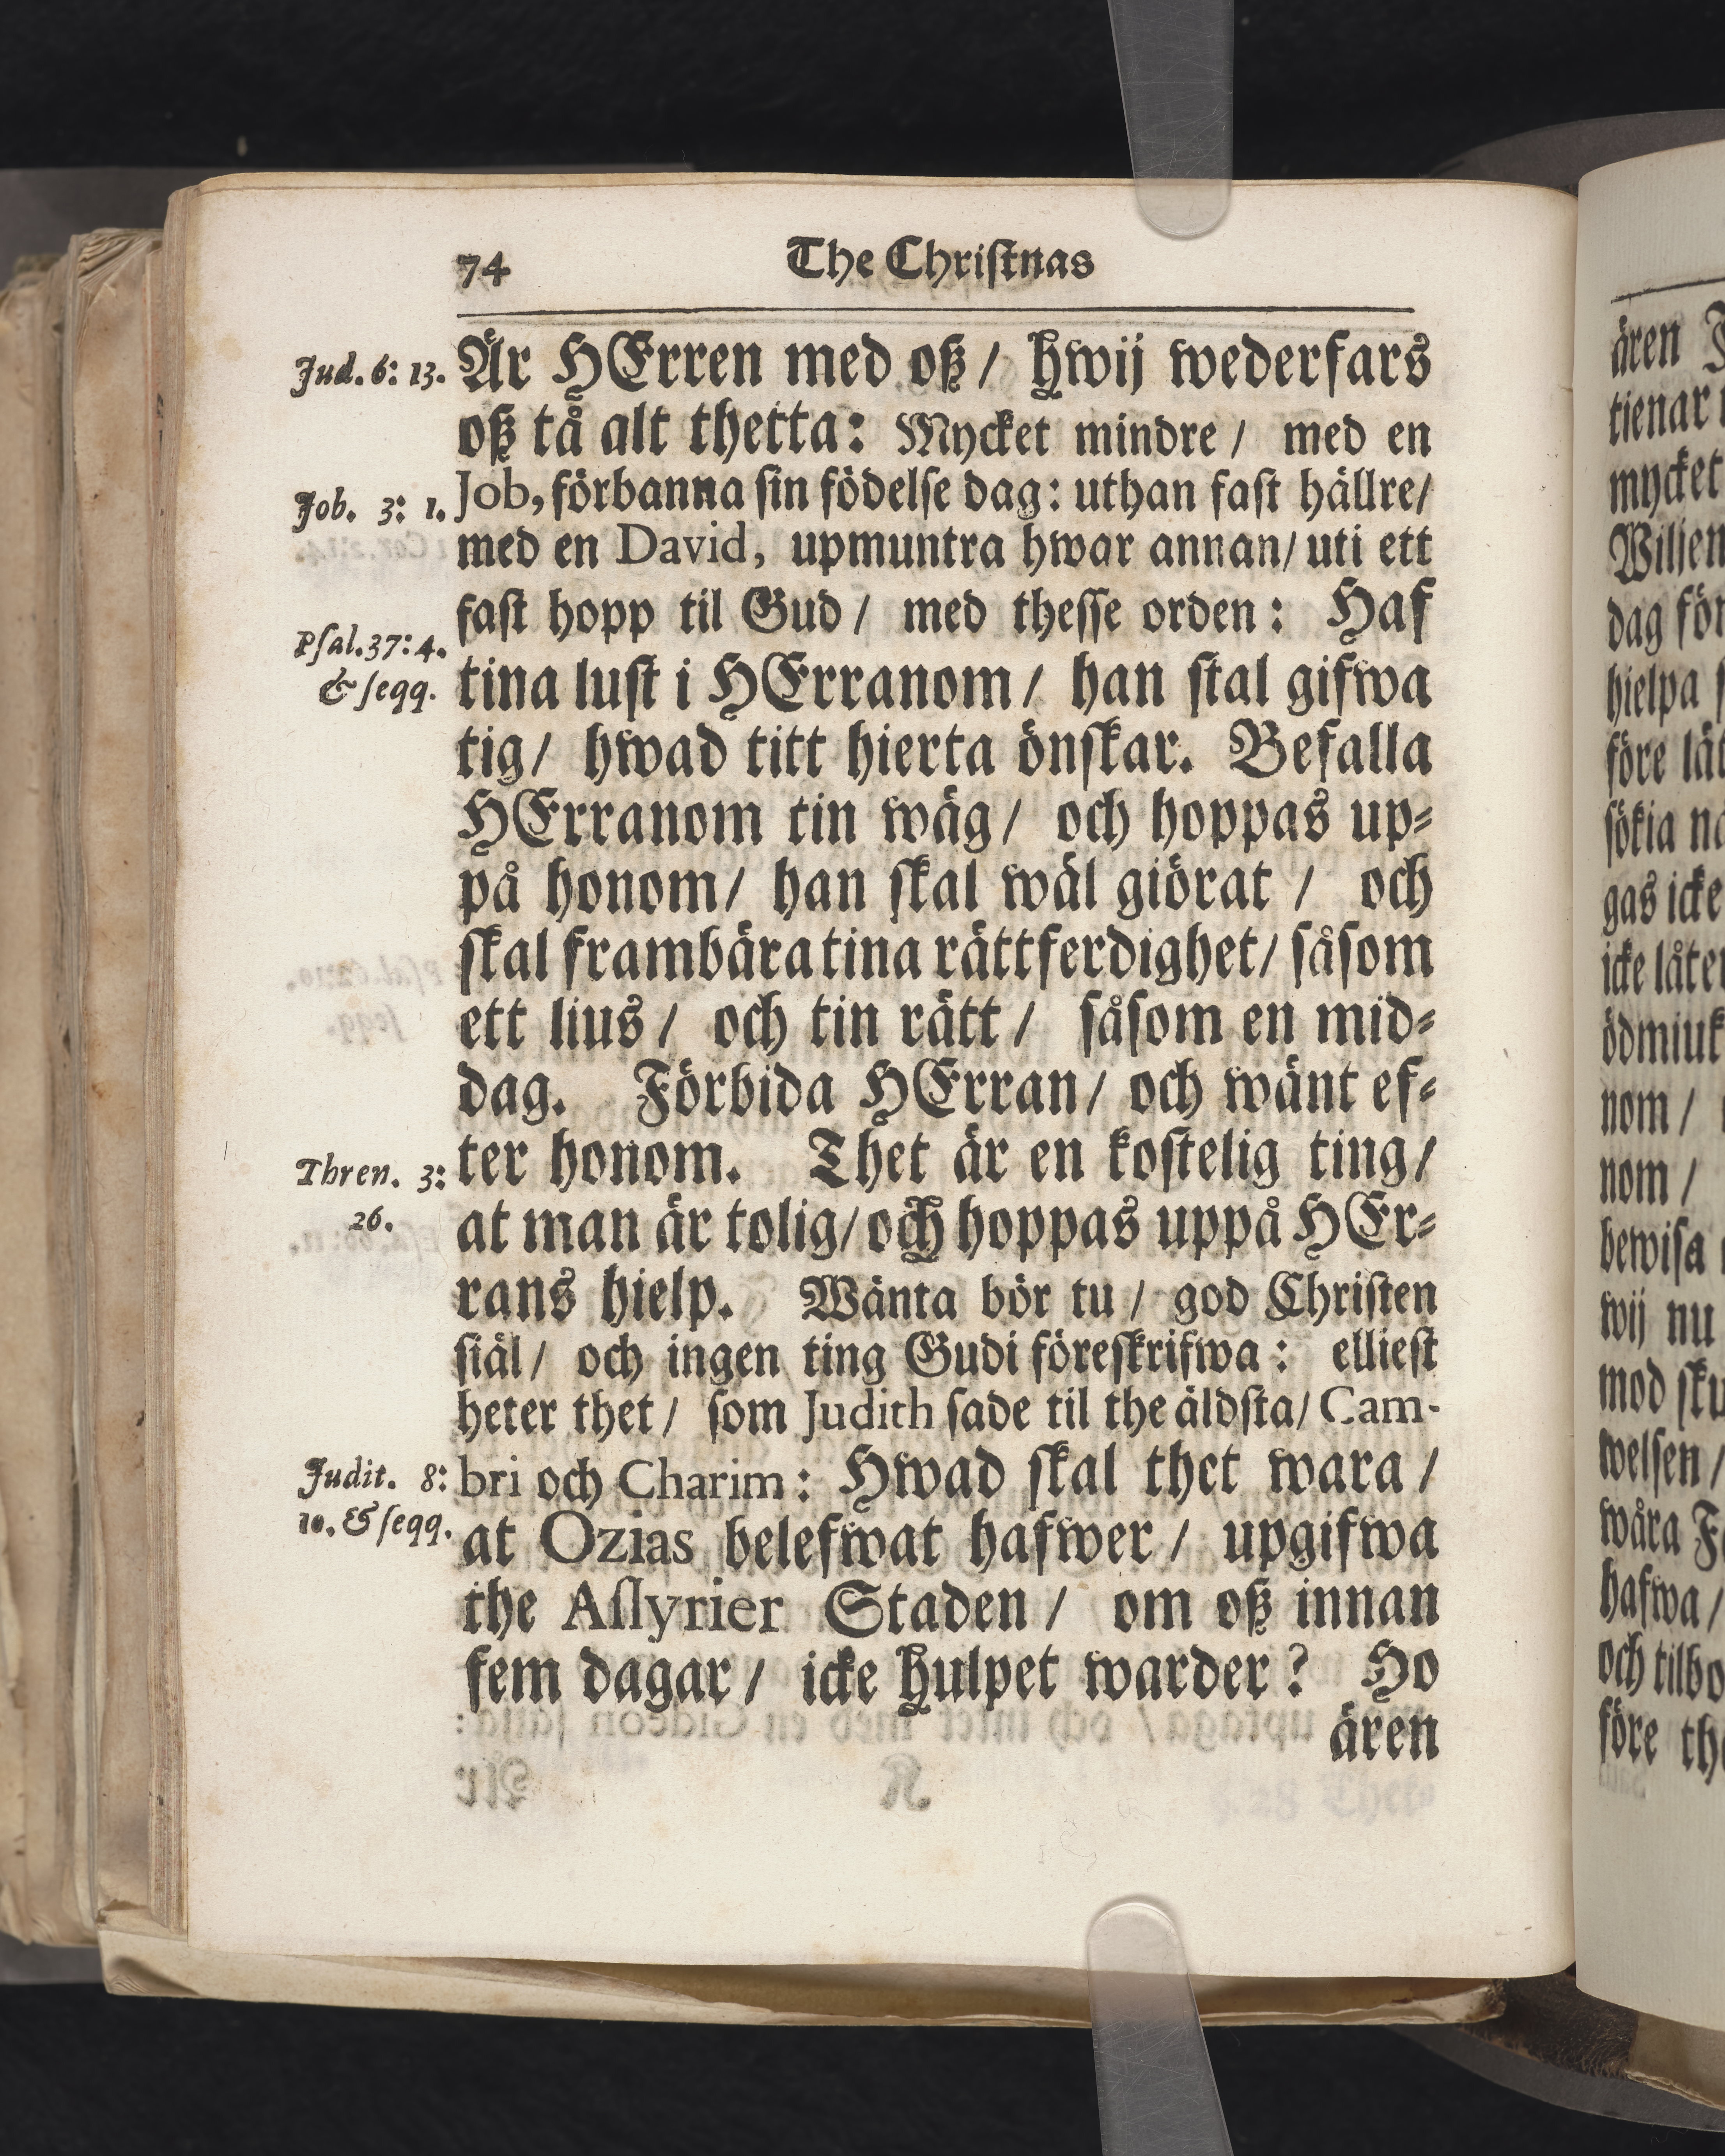 74 The Christnas
Jud. 6: 13.
Är HErren med oß / hwij wederfars
oß tå alt thetta: Mycket mindre / med en
Job. 3: 1.
Job, förbanna sin födelse dag: uthan fast hällre/
med en David, upmuntra hwar annan/ uti ett
fast hopp til Gud / med thesse orden: Haf
Psal. 37: 4.
& seqq.
tina lust i HErranom / han skal gifwa
tig / hwad titt hierta önskar. Befalla
HErranom tin wäg / och hoppas up-
på honom / han skal wäl giörat / och
skal frambära tina rättferdighet / såsom
ett lius / och tin rätt / såsom en mid-
dag. Förbida HErran / och wänt ef-
Thren. 3:
26.
ter honom. Thet är en kostelig ting /
at man är tolig / och hoppas uppå HEr-
rans hielp. Wänta bör tu / god Christen
siäl / och ingen ting Gudi föreskrifwa: elliest
heter thet / som Judith sade til the äldsta / Cam-
Judit. 8:
10. & seqq.
bri och Charim: Hwad skal thet wara /
at Ozias belefwat hafwer / upgifwa
the Assyrier Staden / om oß innan
fem dagar / icke hulpet warder? Ho
ären
ären
tienar
mycket
Wiljen
dag för
hielpa
före lät
sökia
gas icke
icke låter
ödmiuk
nom /
nom /
bewisa
wij nu
mod
welsen /
wåra
hafwa /
och tilbo
före